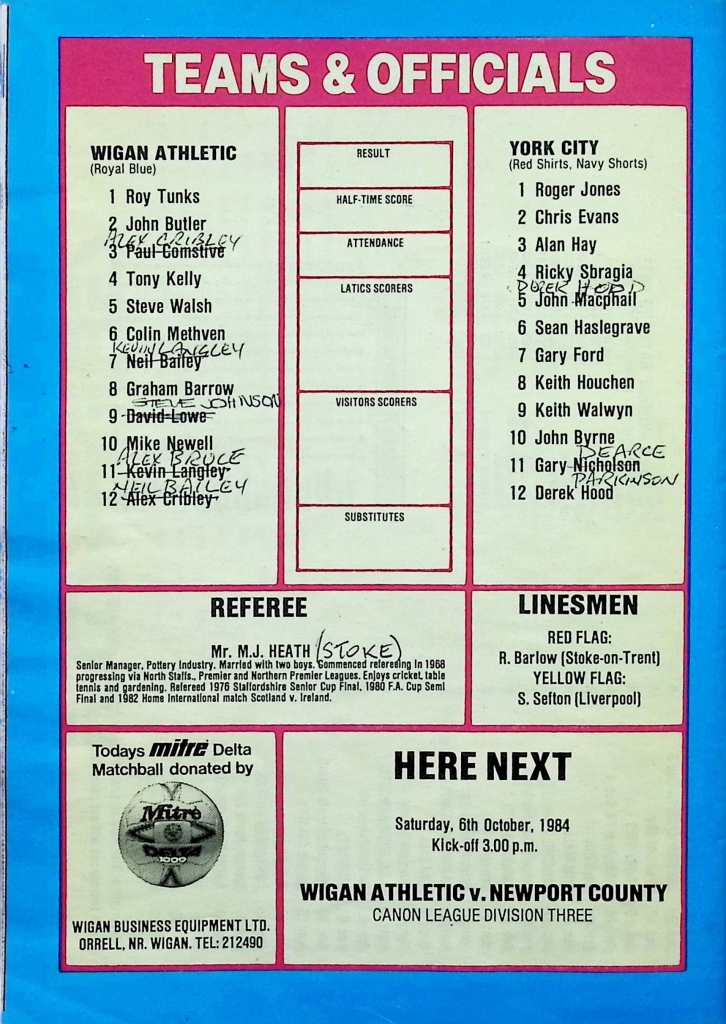 TEAMS & OFFICIALS
WIGAN ATHLETIC
(Royal Blue)
1 Roy Tunks
2 John Butler
ALEX CRIBLEY
3 Paul Comstive
4 Tony Kelly
5 Steve Walsh
6 Colin Methven
KEVIN LANGLEY
7 Neil Bailey
8 Graham Barrow
STEVE JOHNSON
9 David Lowe
10 Mike Newell
ALEX BRUCE
11 Kevin Langley
NEIL BAILEY
12 Alex Cribley
RESULT
HALF-TIME SCORE
ATTENDANCE
LATICS SCORERS
VISITORS SCORERS
SUBSTITUTES
YORK CITY
(Red Shirts, Navy Shorts)
1 Roger Jones
2 Chris Evans
3 Alan Hay
4 Ricky Sbragia
DEREK HOOD
5 John Macphail
6 Sean Haslegrave
7 Gary Ford
8 Keith Houchen
9 Keith Walwyn
10 John Byrne
PEARCE
11 Gary Nicholson
PARKINSON
12 Derek Hood
REFEREE
Mr. M.J. HEATH (STOKE)
Senior Manager, Pottery Industry. Married with two boys. Commenced refereeing in 1968
progressing via North Staffs., Premier and Northern Premier Leagues. Enjoys cricket, table
tennis and gardening. Refereed 1976 Staffordshire Senior Cup Final, 1980 F.A. Cup Semi
Final and 1982 Home International match Scotland v. Ireland.
LINESMEN
RED FLAG:
R. Barlow (Stoke-on-Trent)
YELLOW FLAG:
S. Sefton (Liverpool)
Todays mitre Delta
Matchball donated by
Mitre
DELTA
1000
WIGAN BUSINESS EQUIPMENT LTD.
ORRELL, NR. WIGAN. TEL: 212490
HERE NEXT
Saturday, 6th October, 1984
Kick-off 3.00 p.m.
WIGAN ATHLETIC v. NEWPORT COUNTY
CANON LEAGUE DIVISION THREE